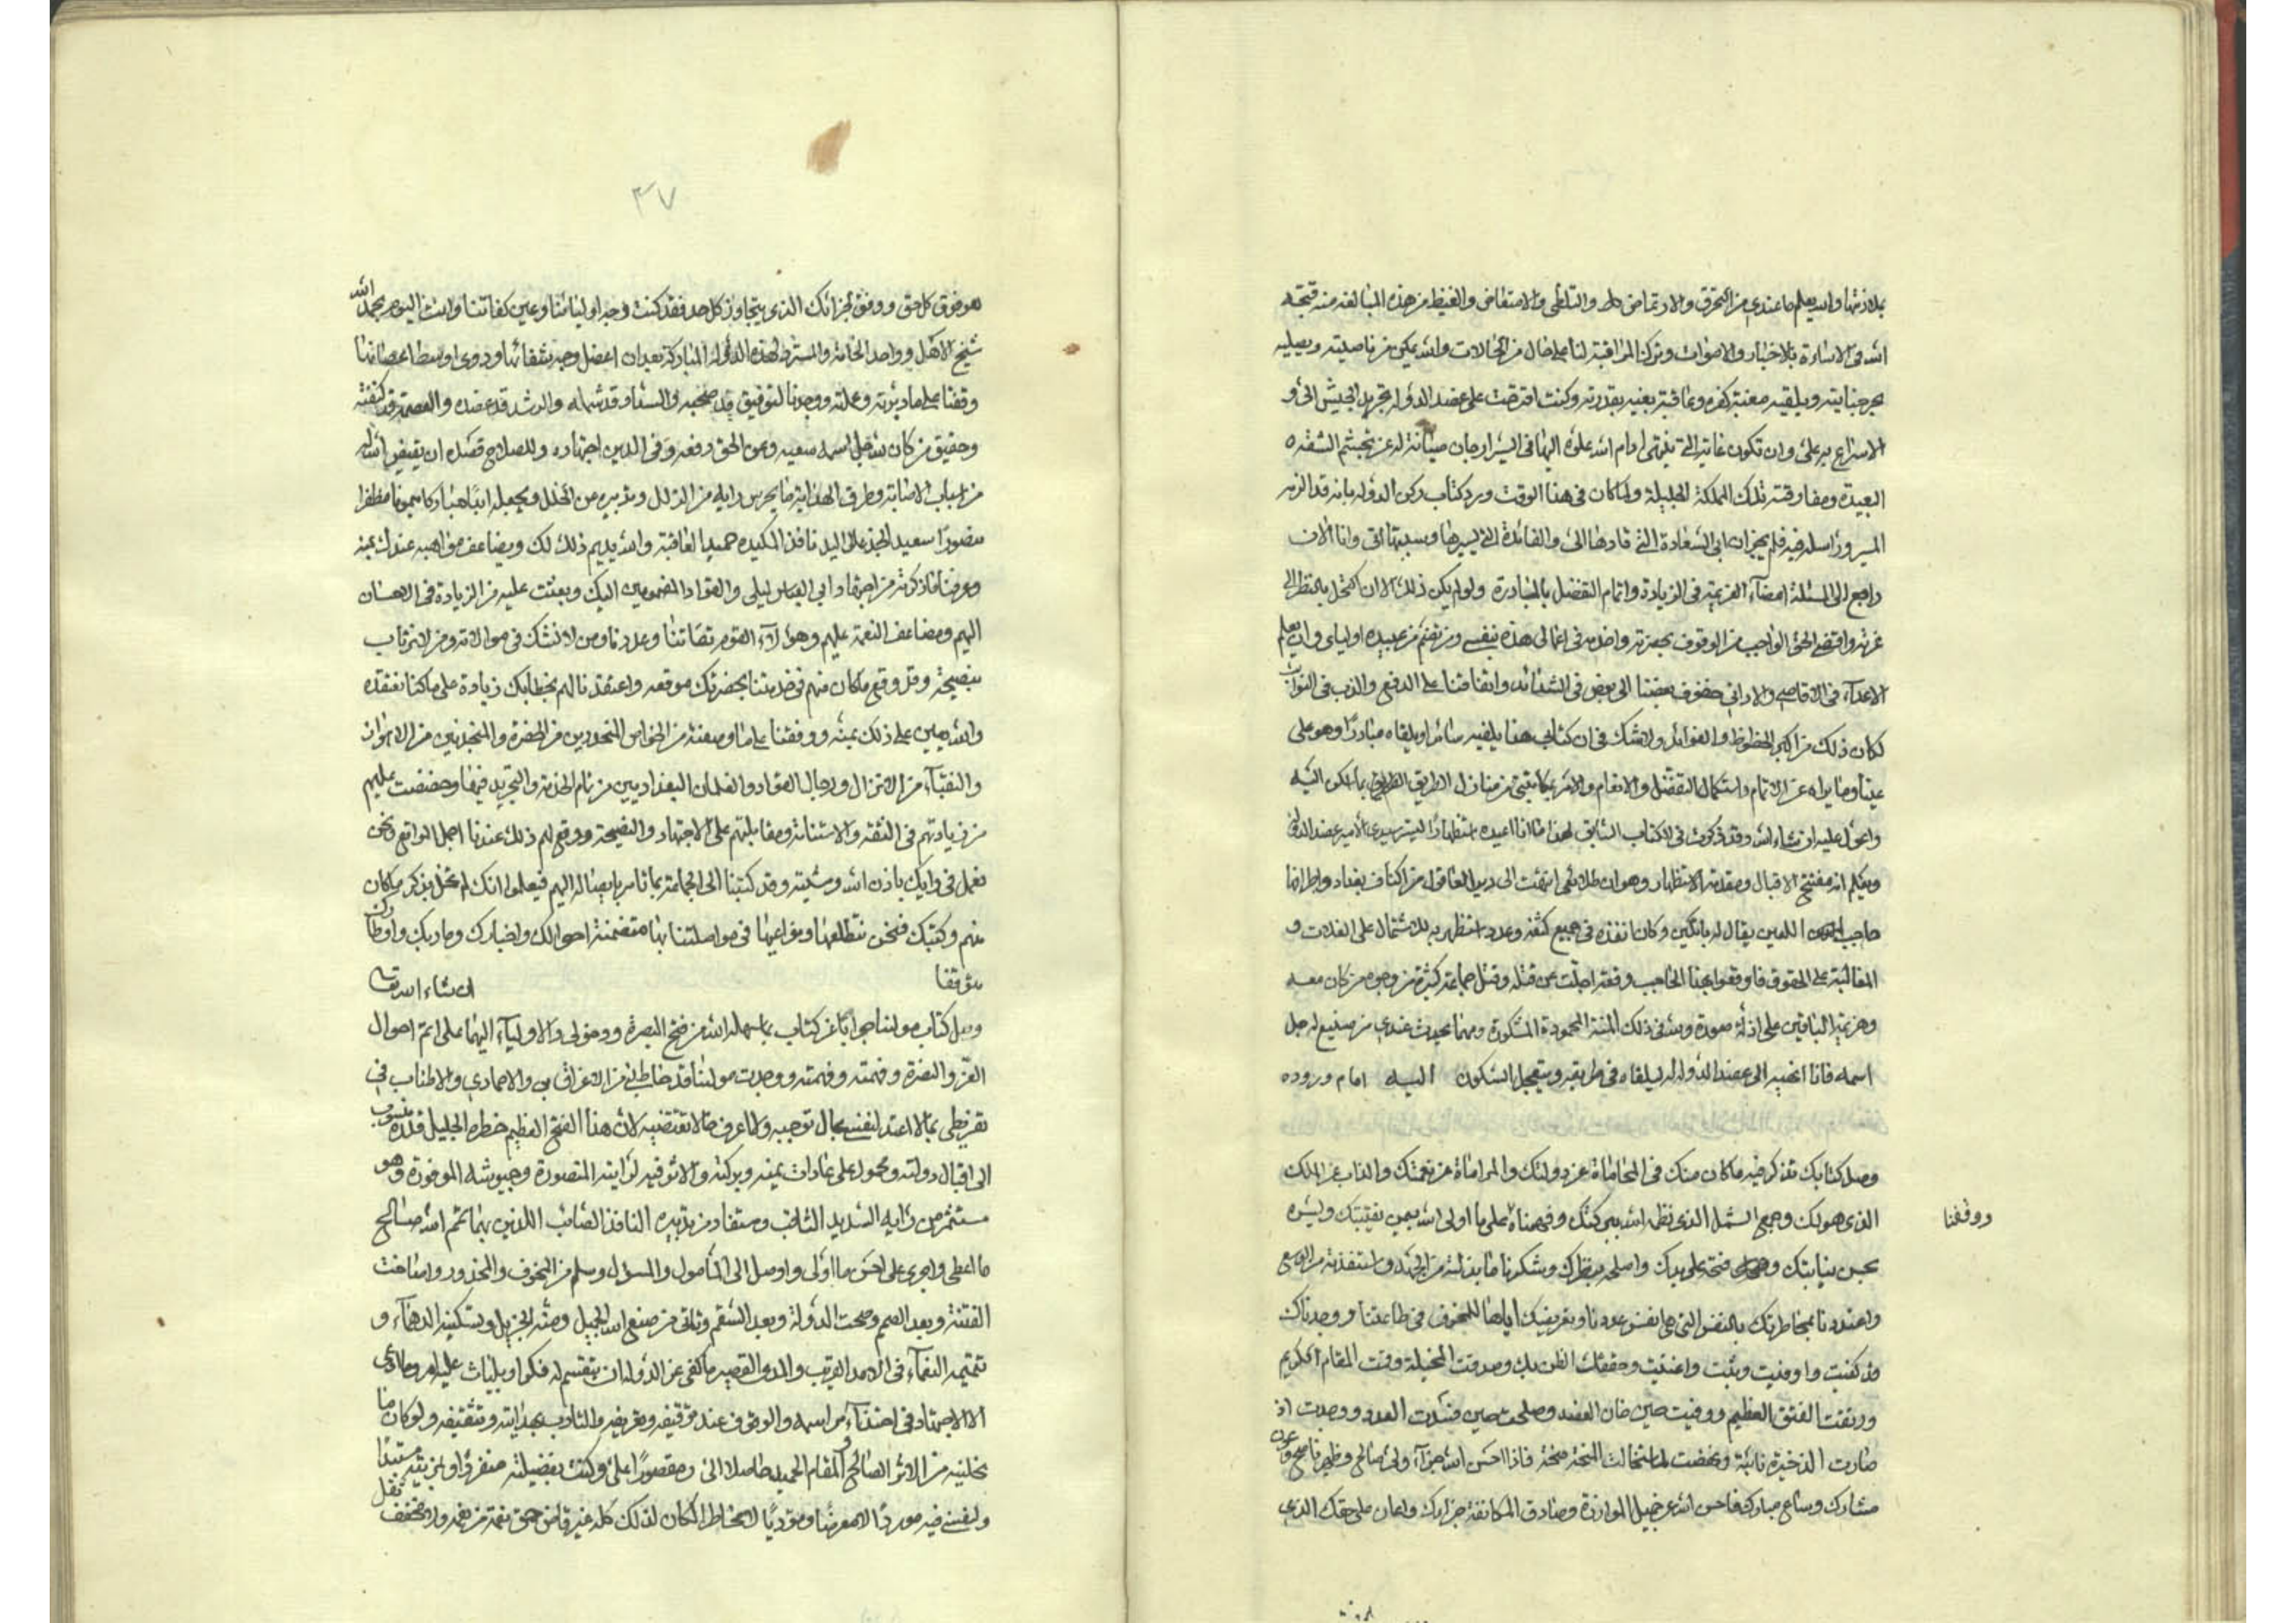 بلاذنها والله يعلم ما عندي من التحرق والارتماض والتلظي والامتعاض والغيظ من هذه المبالغة منه قبحه
الله في الاساءة بالاخبار والاصوات وترك المراقبة لنا على حال من الحالات والله يمكن من ناصيته ويصليه
بحر جنايته ويلقيه مغبة كفره وعاقبة بغيه بقدرته وكنت اقترحت على عضد الدولة تجريد الجيش الى و
الاسراع به على وان تكون غايته التي ينتهي ادام الله علوه اليها في السير ارجان صيانة له عن تجشم الشقة
البعيدة ومفارقته تلك المملكة الجليلة ولما كان في هذا الوقت ورد كتاب ركن الدولة بانه قد الزمه
المسير وراسله فيه فلم يجز ان ابى السعادة التي قادها الى والفائدة التي يسيرها وسببها الى وانا الان
راجع الى المسئلة امضاء العزيمة في الزيادة واتمام التفضل بالمبادرة ولو لم يكن ذلك الا ان اكتحل بالنظر الى
غرته واقتضي الحق الواجب من الوقوف بحضرته واخدمه في اعمالي هذه بنفسي ومن يضم من عبيده اوليائي وان يعلم
الاعداء في الاقاصي والاداني حفوف بعضنا الى بعض في الشدائد واتفاقنا على الدفع والذب في النوائب
لكان ذلك من اكبر الحظوظ والفوائد ولا شك في ان كتابي هذا يلفيه سائرا ويلقاه مبادرا وهو على
عيننا وما يراه من الاتمام واستكمال التفضل والانعام والامر بمكاتبتي من منازل الطريق بما اسكن اليه
واعول عليه ان شاء الله وقد ذكرت في الكتاب السابق لهذا ما انا اعيده استظهارا ليسر سيدي الامير عضد الدولة
ويعلم انه مفتتح الاقبال ومقدمة الاستظهار وهو ان طلائعي انتهت الى دير العاقول من اكناف بغداد واطرافها
حاجب اللعين يقال له بانكين وكان انفذه في جميع كثفه وعدد استظهر به للاشتمال على الغلات و
المغالبة على الحقوق فاوقعوا بهذا الحاجب وقعة اجلت عن قتله وقتل جماعة كثيرة من وجوه من كان معه
وهزيمة الباقين على اذل صورة ولله في ذلك المنة المحمودة المشكورة ومهما يحدث عندي من صنيع له جل
اسمه فانا انهيه الى عضد الدولة ليلقاه في طريقه ويتعجل السكون اليه امام وروده
وصل كتابك تذكر فيه ما كان منك في المحاماة عن دولتك والمراماة عن نعمتك والذاب عن الملك
الذي هو لك وجمع الشمل الذي نظمه الله ببركتك وفهمناه على ما اولى الله بيمن نقيبتك ويسره
ووفقنا
بحسن نيابتك فتحه على يديك واصلحه بنظرك وشكرنا ما بذلته من الجهد واستنفدته من الوسع
واعتددنا بمخاطرتك بالنفس التي هي انفس عددنا وبتعريضك اياها للمخوف في طاعتنا ووجدناك
قد كفيت واوفيت ونبت واغنيت وحققت الظن بك وصدقت المخيلة وقمت المقام الكريم
ورتقت الفتق العظيم ووفيت حين خان العضد وصلحت حين فسدت العدد ووجدت اذ
ضارت الذخيرة نائبة ونهضت لما استحالت المنحة محنة فاذا احسن الله جزاء ولي صالح وظهير ناصح وعون
مشارك وساع مبارك فاحسن الله عن جميل الموازرة وصادق المكانفة جزاءك واعان على حقك الذي
٣٧
هو فوق كل حق ووفق لجزائك الذي يتجاوز كل حد فقد كنت وجه اوليائنا وعين كفاتنا وانت اليوم بحمد الله
شيخ الاهل وواحد الخاصة والمسترد لهذه الدولة المباركة بعد ان اعضل وجه شفائها ودوى اوسط اعضائها
وقفنا على ما دبرته وعملته ووجدنا التوفيق قد صحبه والسداد قد شمله والرشد قد عضده والعصمة قد كنفته
وحقيق من كان لله جل اسمه سعيه وعن الحق دفعه وفي الدين اجتهاده وللصلاح قصده ان يقيض الله له
من اسباب الاصابة وطرق الهداية ما يحرس رايه من الزلل وتدبيره من الخلل ويجعله ابدا مباركا ميمونا مظفرا
منصورا سعيد الجد عالي اليد نافذ المكيده حميد العاقبة والله يديم ذلك لك ويضاعف مواهبه عندك بمنه
وعرفنا ما ذكرته من امر وابي العباس ليلى والقواد المضمومين اليك وبعثت عليه من الزيادة في الاحسان
اليهم ومضاعف النعمة عليهم وهؤلاء القوم ثقاتنا وعددنا ومن لا نشك في موالاته ومن لا نرتاب
بنصيحته وقل وقع ما كان منهم في خدمتنا بحضرتك موقعه واعتقدنا لهم بخطابك زيادة على ما كنا نعتقده
والله يعين على ذلك بمنه ووقفنا على ما وصفته من الخواص المنحدرين من الحضرة والمنجدين من الاهواز
والنقباء من الاتراك ورجال القواد والغلمان البغداديين من تام الخدمة والتجريد فيها وحضضت عليهم
من زيادتهم في الثقة والاستنامة ومقابلتهم على الاجتهاد والنصيحة ووقع لهم ذلك عندنا اجمل المواقع ونحن
نعمل في رايك باذن الله ومشيته وقد كتبنا الى الجماعة بما تامر بايصاله اليهم فيعلموا انك لم تخل بذكر ما كان
منهم وكتبك فنحن نتطلعها ونراعيها في مواصلتنا بها متضمنة احوالك واخبارك وما دبك واوطارك
موفقا ان شاء الله تعالى
وصل كتاب مولانا جوابا عن كتاب بما سهله الله من فتح البصرة ودخولي والاولياء اليها على اتم احوال
العز والنصرة وفهمته ووجدت مولانا قد خاطبني من الاعراق بي والاحماد لي والاطناب في
تقريظي بما لا اعتد لنفسي بحال توجبه ولا اعرف حالا تقتضيه لان هذا الفتح العظيم خطره الجليل قدره منسوب
الى اقبال دولته ومحمول على عادات يمنه وبركته ولائق فيه لرايته المنصورة وجيوشه الموفورة وهو
مستثمر من رايه السديد الثاقب ومستفاد من تدبيره النافذ الصائب اللذين بهما تمم الله صالح
ما اعطى واجرى على احسن ما اولى واوصل الى المأمول والمسؤل وسلم من المخوف والمحذور واناخت
الفتنة وبعد الصمم وصحت الدولة وبعد السقم وثاقى من صنع الله الجميل ومنه الجزيل وتسكينه الدهماء و
تتميمه النعماء في الامد القريب والمدى القصير ما كفى عز الدولة ان يتقسم له فكرا ويلتاث عليه امر وما لي
الا الاجتهاد في احتذاء مراسمه والوقوف عند توقيفه وتعريفه والتأدب بهدايته وتثقيفه ولو كان ما
يخلينيه من الاثر الصالح والمقام الحميد حاصلا الى ومقصورا على وكنت بفضيلته منفردا وبمزيته مستبدا
ولنفسي فيه موردا لا معرضا ومؤديا لا مخاطرا لكان لذلك كله غير قاض حق نعمة من نعمه ولا مخفف ثقل